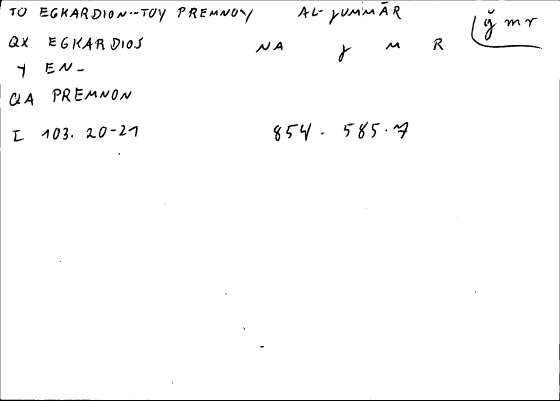 TO EGKARDION--TOY PREMNOY AL-ɉUMMĀR ǧ mr
QX EGKARDIOS NA ɉ M R
Y EN-
QA PREMNON
I 103. 20-21 854. 585.7